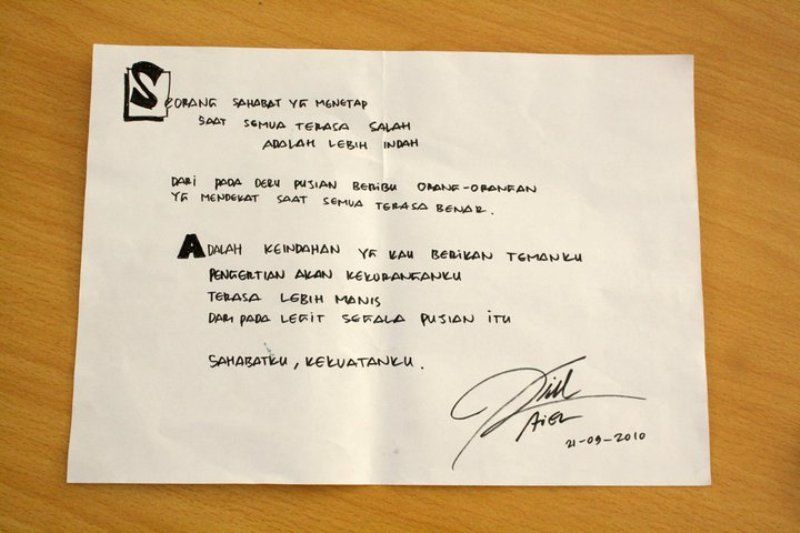 SEORANG SAHABAT YG MENETAP
SAAT SEMUA TERASA SALAH
ADALAH LEBIH INDAH
DARI PADA DERU PUJIAN BERIBU ORANG-ORANGAN
YG MENDEKAT SAAT SEMUA TERASA BENAR.
ADALAH KEINDAHAN YG KAU BERIKAN TEMANKU
PENGERTIAN AKAN KEKURANGANKU
TERASA LEBIH MANIS
DARI PADA LEGIT SEGALA PUJIAN ITU
SAHABATKU, KEKUATANKU.
21-09-2010